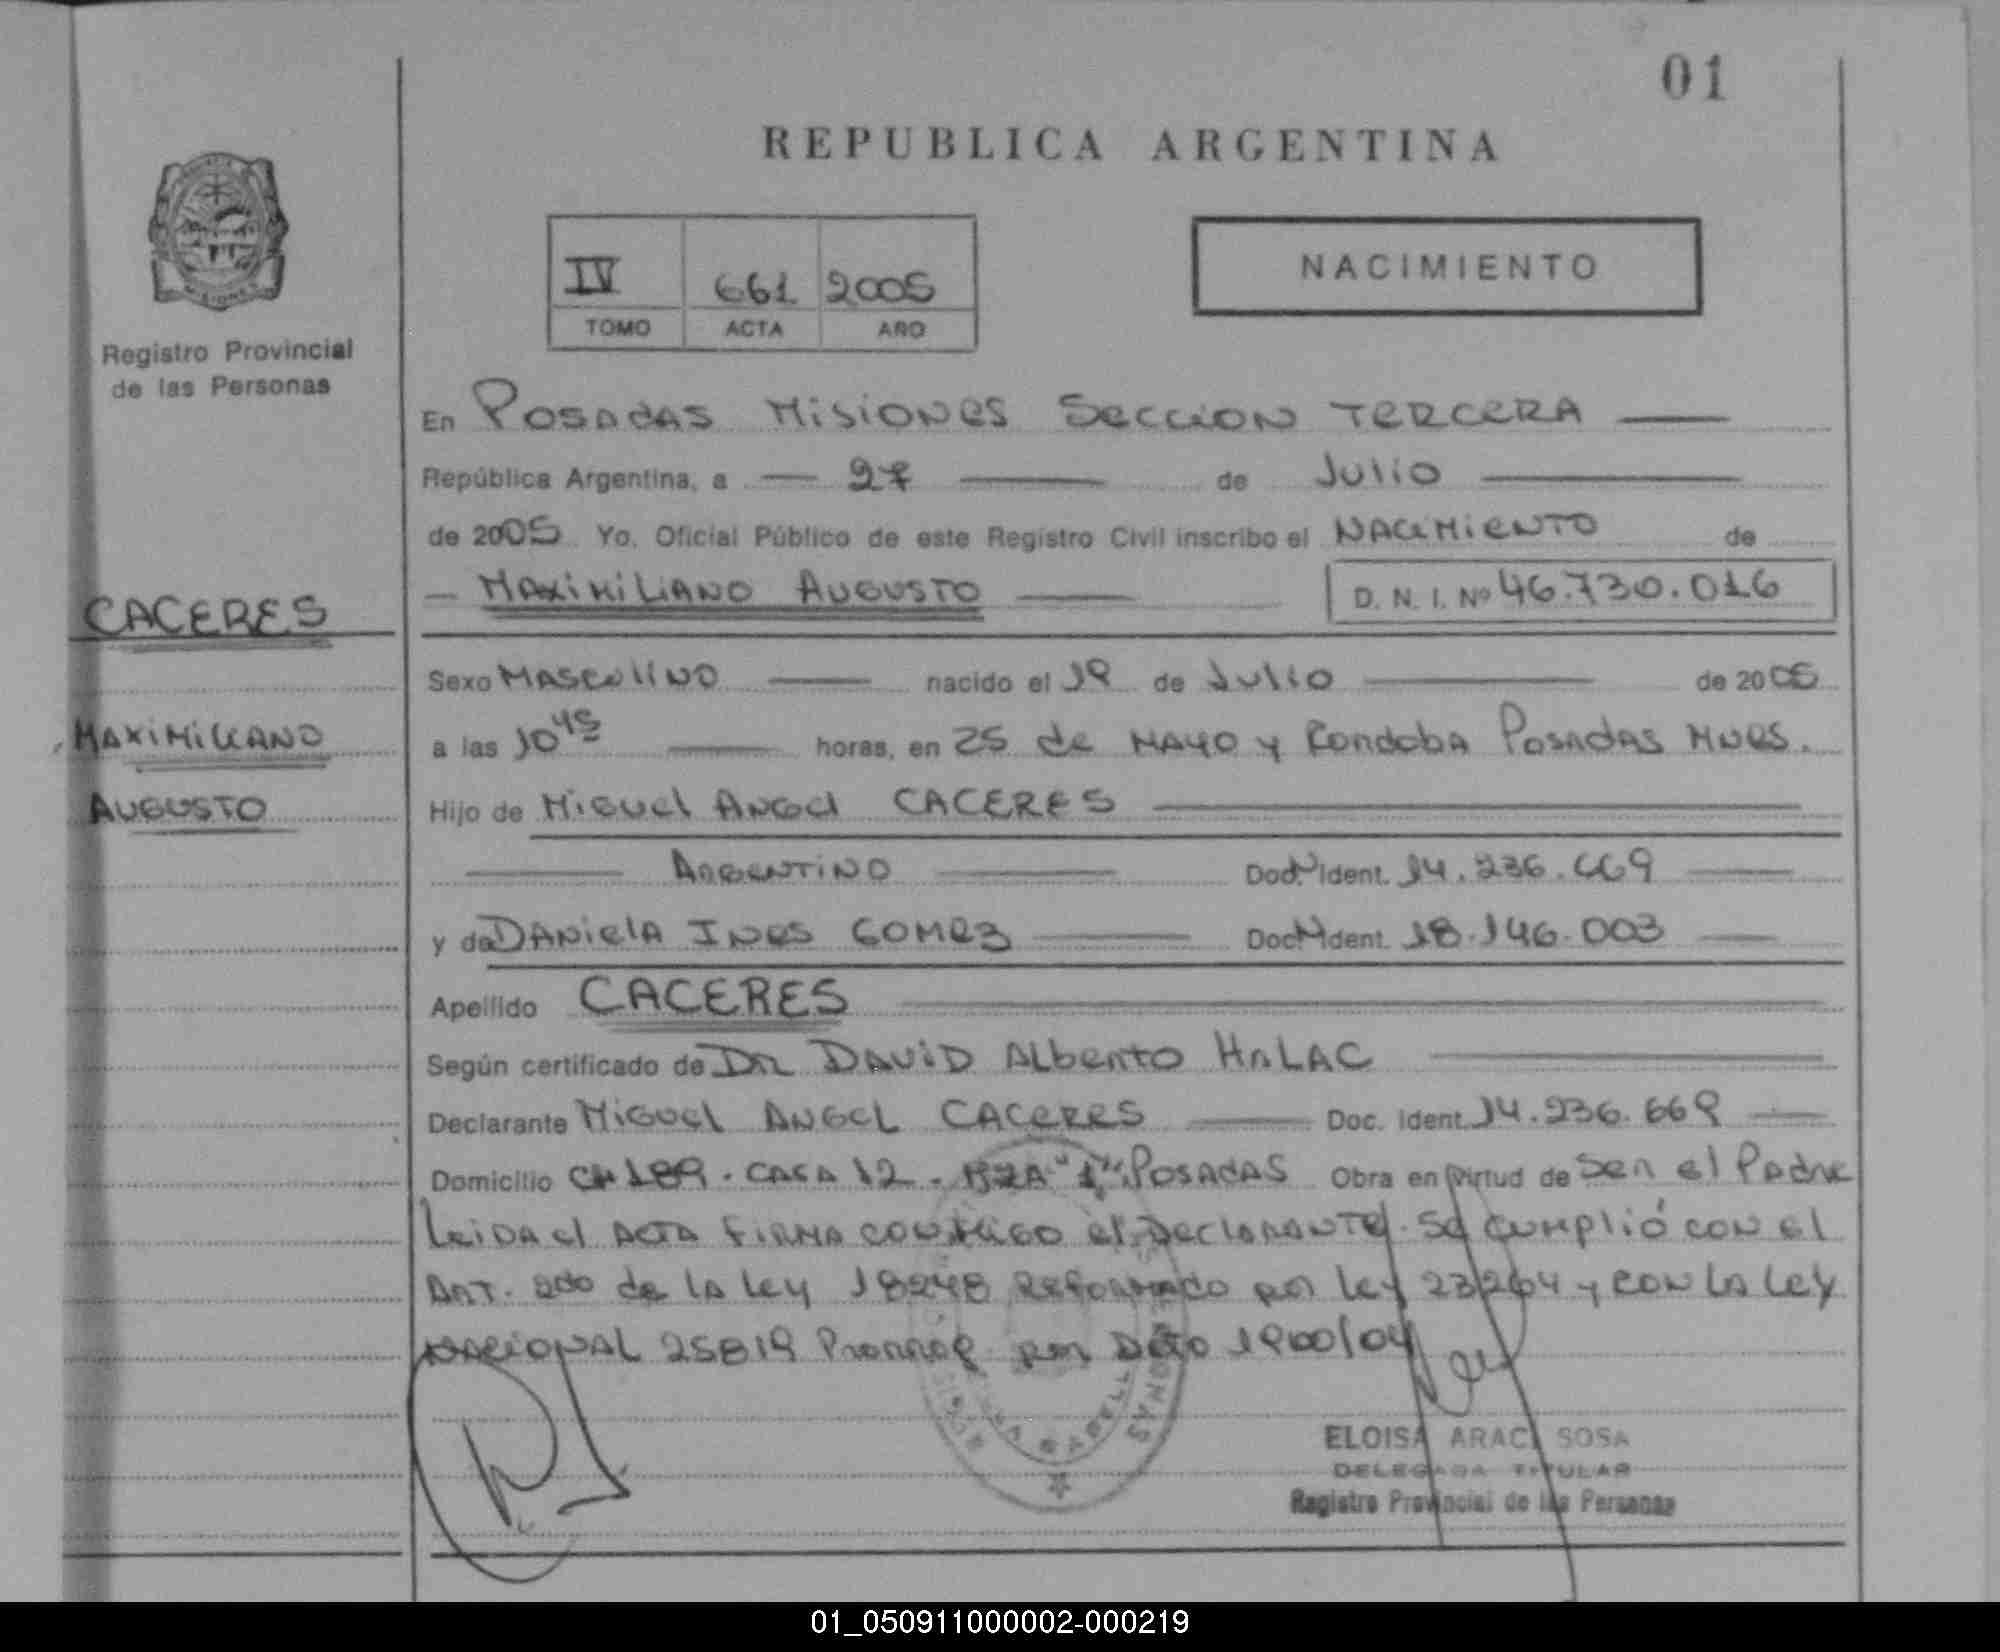 01
REPUBLICA ARGENTINA
IV 661 2005
TOMO ACTA AÑO
NACIMIENTO
Registro Provincial
de las Personas
CACERES
MAXIMILIANO
AUGUSTO
En POSADAS MISIONES SECCION TERCERA
República Argentina, a 27 de Julio
de 2005 Yo, Oficial Público de este Registro Civil inscribo el NACIMIENTO de
MAXIMILIANO AUGUSTO D. N. I. Nº 46.730.016
Sexo MASCULINO nacido el 19 de Julio de 2005
a las 10 45 horas, en 25 de MAYO y Cordoba Posadas Mnes.
Hijo de Miguel Angel CACERES
ARGENTINO Doc. Ident. 14.236.669
y de DANIELA INES GOMEZ Doc. Ident. 18.146.003
Apellido CACERES
Según certificado de DR DAVID Alberto HALAC
Declarante Miguel ANGEL CACERES Doc. Ident. 14.236.669
Domicilio CH 189 - CASA 12 - MZA "1" POSADAS Obra en virtud de Ser el Padre
Leida el ACTA FIRMA CONMIGO el Declarante. Se cumplió con el
ART. 2do de la Ley 18248 Reformado por Ley 23264 y con la Ley
NACIONAL 25819 Prorrog por Dcto 1900/04
ELOISA ARACI SOSA
DELEGADA TITULAR
Registro Provincial de las Personas
01_050911000002-000219